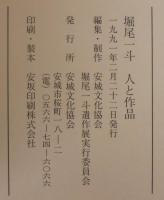 堀尾一斗 人と作品
一九九一年二月二十二日発行
編集・制作 安城文化協会
堀尾一斗遺作展実行委員会
発行所 安城文化協会
安城市桜町一八―二
(電)〇五六六―七四―六〇六六
印刷・製本 安坂印刷株式会社